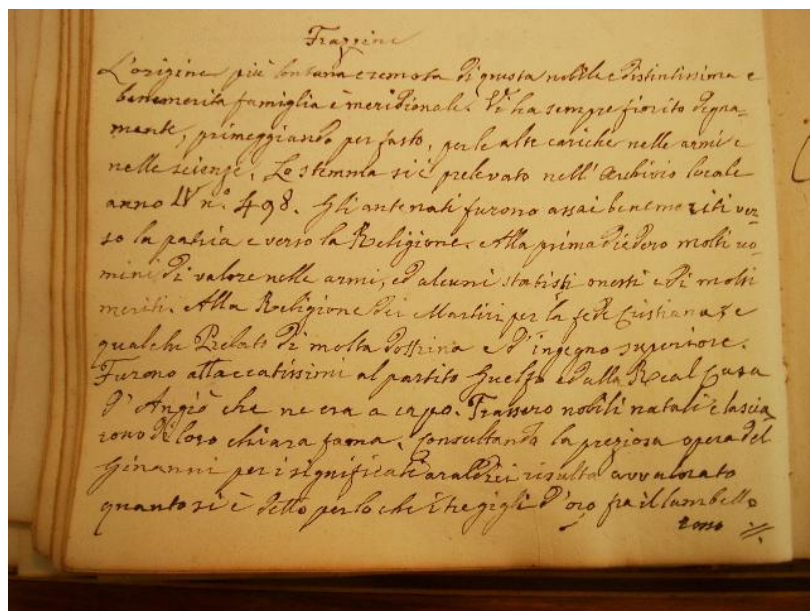 Frassine
L'origine più lontana e remota di questa nobile e distintissima e
benemerita famiglia è meridionale. Vi ha sempre fiorito degna-
mente, primeggiando per fasto, per le alte cariche nelle armi e
nelle scienze. Lo stemma si è prelevato nell'Archivio locale
anno LV n.º 498. Gli antenati furono assai benemeriti ver-
so la patria e verso la Religione. Alla prima diedero molti uo-
mini di valore nelle armi, ed alcuni statisti onesti e di molti
meriti. Alla Religione dei Martiri per la fede Cristiana, e
qualche Prelato di molta dottrina e d'ingegno superiore.
Furono attaccatissimi al partito Guelfo ed alla Real Casa
d'Angiò che ne era a capo. Trassero nobili natali e lascia-
rono di loro chiara fama. Consultando la preziosa opera del
Ginanni per i significati araldici risulta avvalorato
quanto si è detto perlochè i tre gigli d'oro fra il lambello
rosso